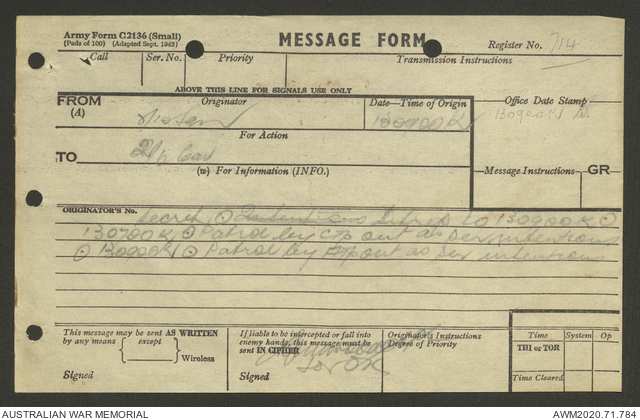 Army Form C2136 (Small)
(Pads of 100) (Adapted Sept. 1943)
MESSAGE FORM
Register No. 714
Call
Ser. No.
Priority
Transmission Instructions
ABOVE THIS LINE FOR SIGNALS USE ONLY
FROM
(A)
Originator
Date—Time of Origin
130900K
Office Date Stamp
For Action
TO
2/6 Cav
(W) For Information (INFO.)
Message Instructions
GR
ORIGINATOR'S No.
secret ⊙ sitrep to 130900K ⊙
130700K ⊙ Patrol by out as per intentions
⊙ 130900K ⊙ Patrol by out as per intentions
This message may be sent AS WRITTEN
by any means
except
Wireless
Signed
If liable to be intercepted or fall into
enemy hands, this message must be
sent IN CIPHER
Signed
Originator's Instructions
Degree of Priority
Time
System
Op
THI or TOR
Time Cleared
AUSTRALIAN WAR MEMORIAL
AWM2020.71.784